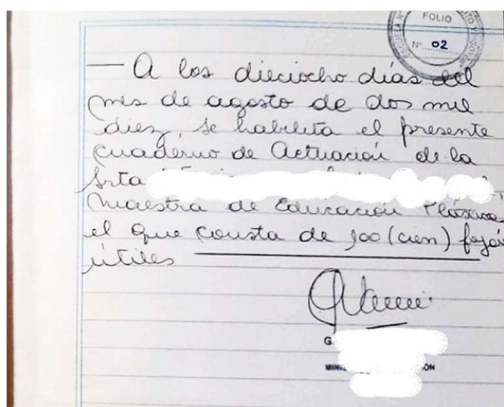 FOLIO
Nº 02
— A los dieciocho días del
mes de agosto de dos mil
diez, se habilita el presente
cuaderno de Actuación de la
Srta
Maestra de Educación Plástica
el que consta de 100 (cien) fojas
útiles
G